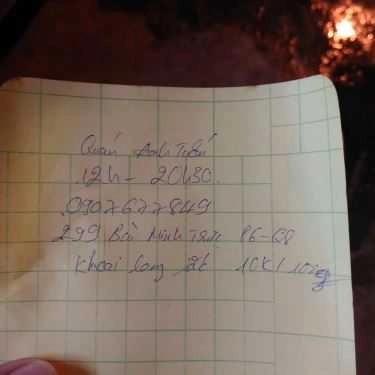 Quán Anh Tuấn
12h - 20h30.
0907677849
299 Bùi Minh Trực P6-Q8
Khoai lang 10K/